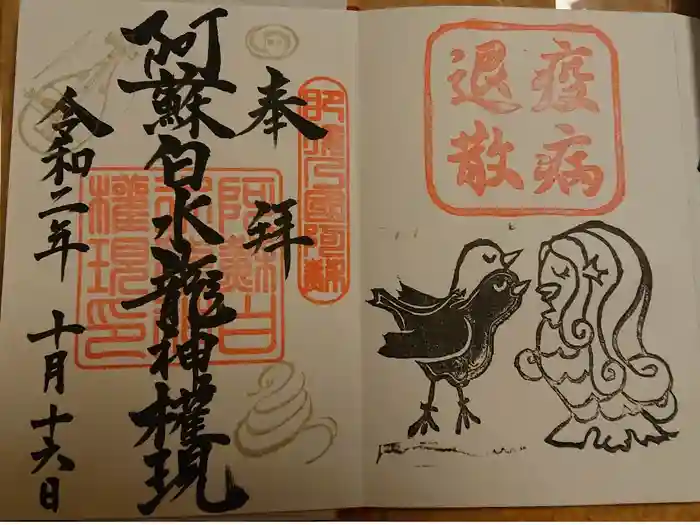 疫病
退散
奉拝
肥後乃国阿蘇
阿蘇白水龍神權現
阿蘇白
水龍神
權現印
令和二年 十月十六日